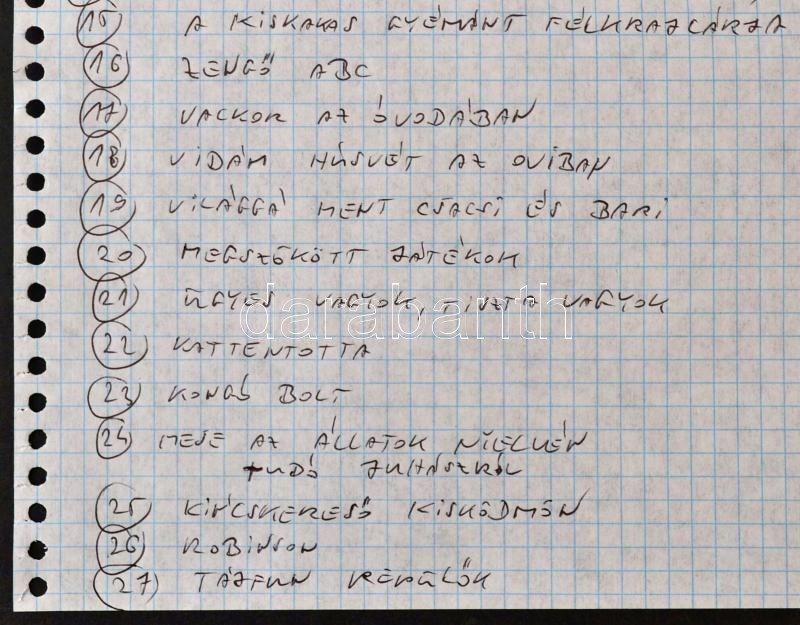 15 A KISKAKAS GYÉMÁNT FÉLKRAJCÁRJA
16 ZENGŐ ABC
17 VACKOR AZ ÓVODÁBAN
18 VIDÁM HÚSVÉT AZ OVIBAN
19 VILÁGGÁ MENT CSACSI ÉS BARI
20 MEGSZÖKÖTT JÁTÉKOK
21 ÜGYES VAGYOK, TISZTA VAGYOK
darabanth
22 KATTENTOTTA
23 KONGÓ BOLT
24 MESE AZ ÁLLATOK NYELVÉN
TUDÓ JUHÁSZRÓL
25 KINCSKERESŐ KISKÖDMÖN
26 ROBINSON
27 TÁJFUN REPÜLŐK